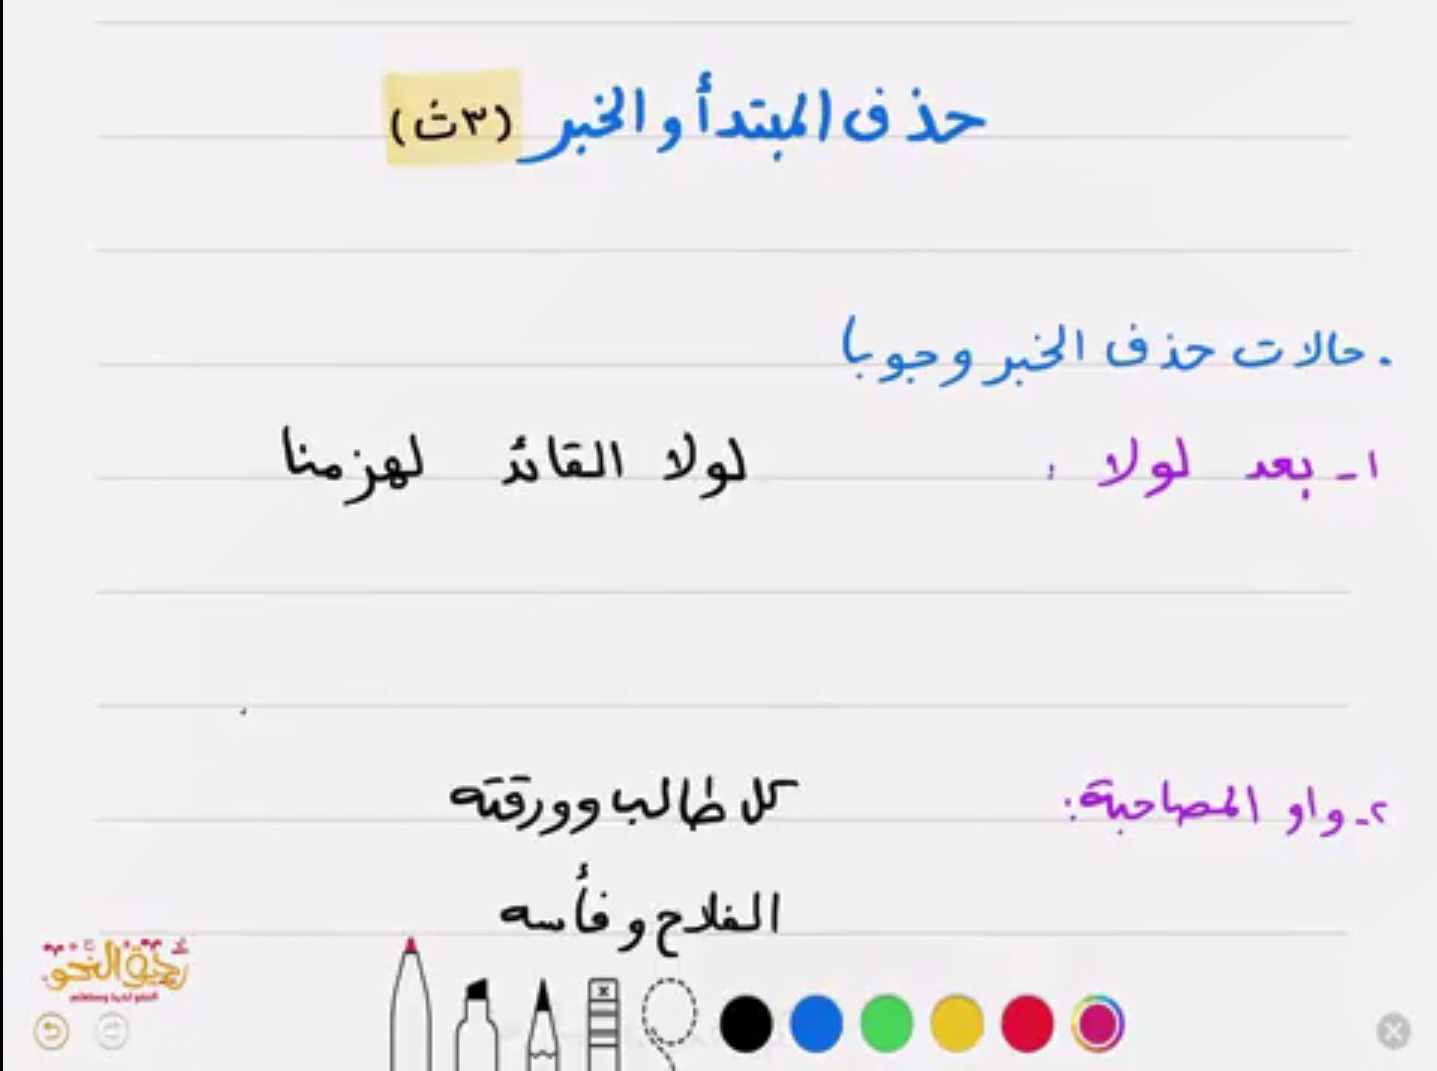 حذف المبتدأ والخبر (٣ث)
. حالات حذف الخبر وجوبا
١- بعد لولا : لولا القائد لهزمنا
٢- واو المصاحبة: كل طالب وورقته
الفلاح وفأسه
رحيق النحو